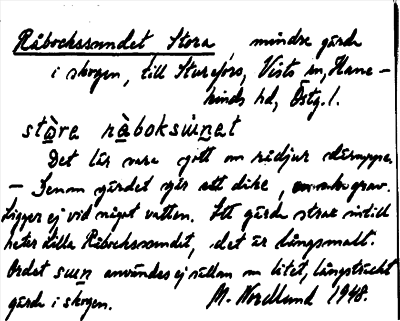 Råbockssundet Stora, mindre gärde
i skogen, till Sturefors, Vists sn, Hane-
kinds hd, Östg. l.
stòra ràboksùnet
Det lär vara gott om rådjur däruppe.
– Genom gärdet går ett dike,
Ligger ej vid något vatten. Ett gärde strax intill
heter Lilla Råbockssundet, det är långsmalt.
Ordet sun användes ej sällan om litet, långsträckt
gärde i skogen. M. Nordlund 1948.